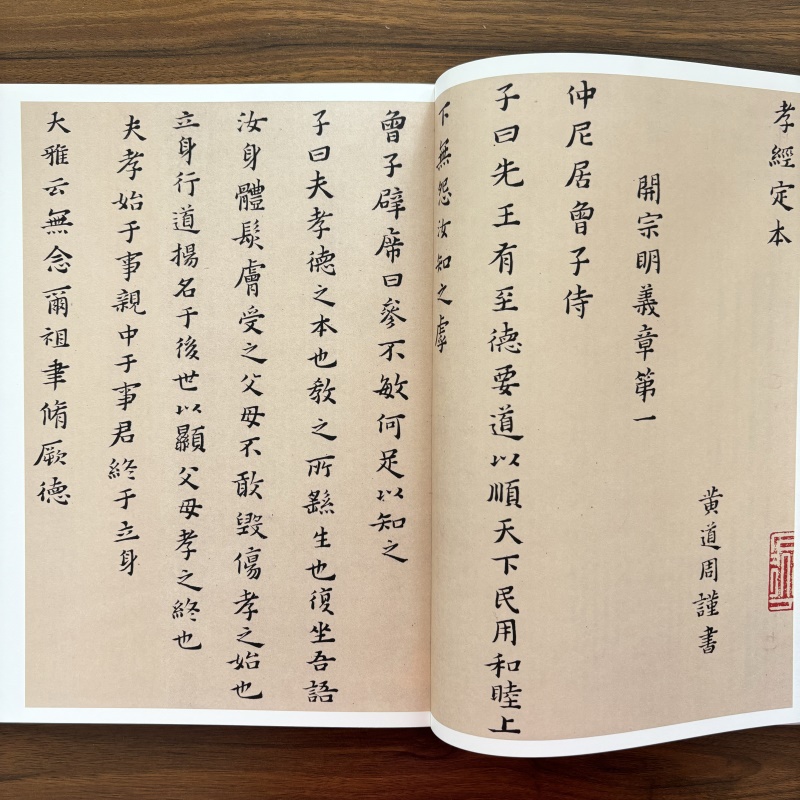 孝經定本
黃道周謹書
開宗明義章第一
仲尼居曾子侍
子曰先王有至德要道以順天下民用和睦上
下無怨汝知之虖
曾子辟席曰參不敏何足以知之
子曰夫孝德之本也教之所繇生也復坐吾語
汝身體髮膚受之父母不敢毀傷孝之始也
立身行道揚名于後世以顯父母孝之終也
夫孝始于事親中于事君終于立身
大雅云無念爾祖聿脩厥德